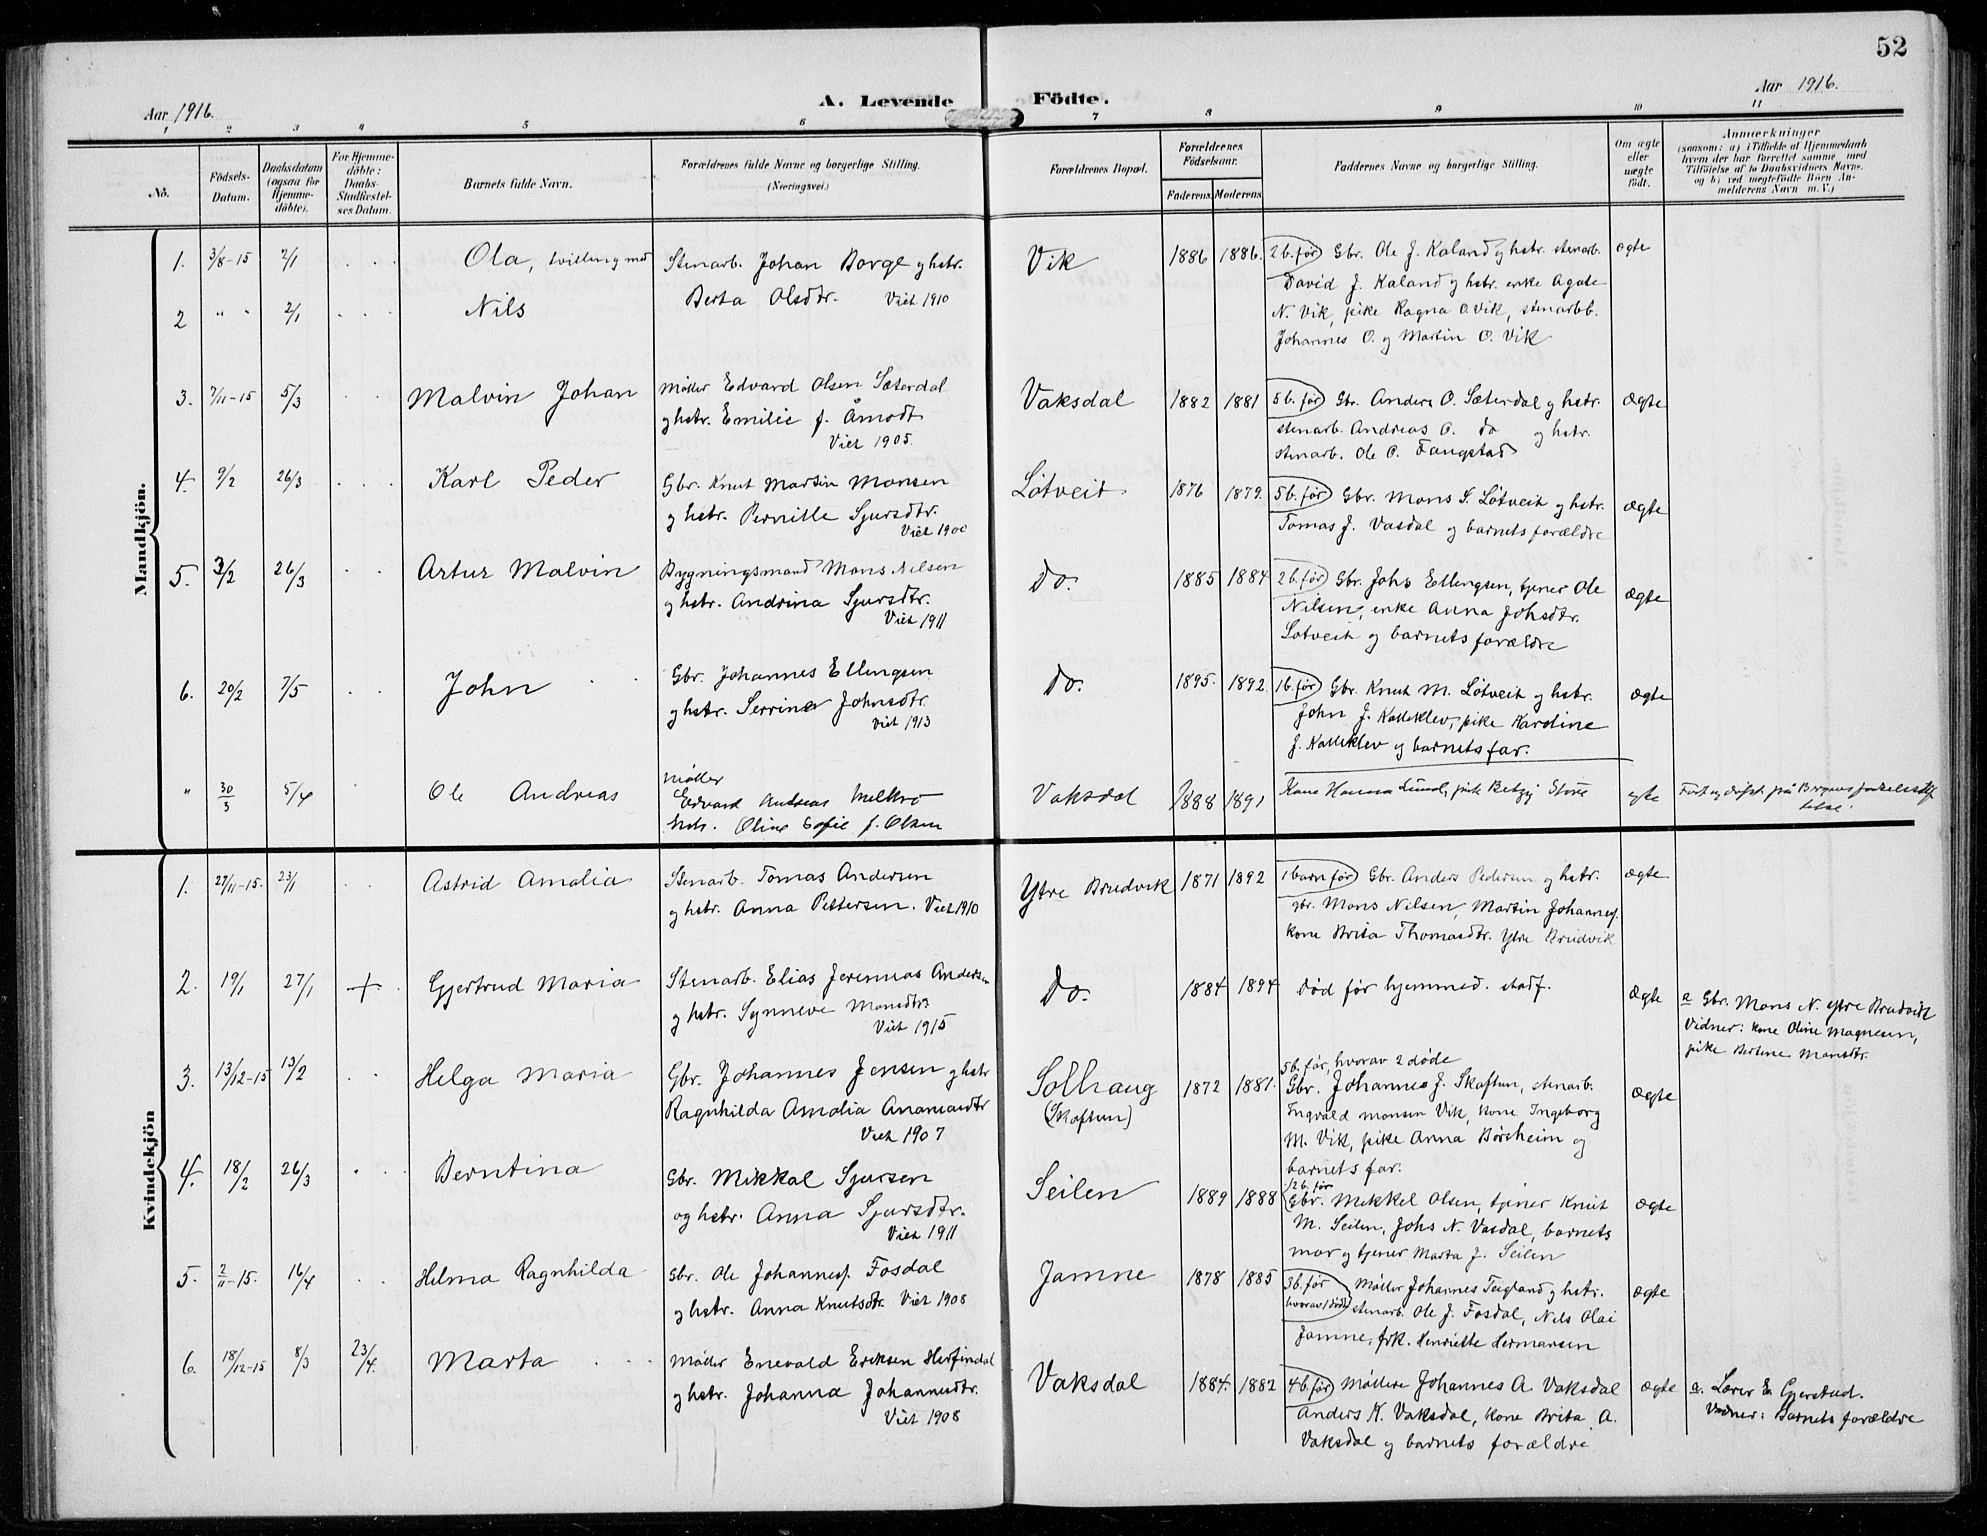 52
Aar 1916.
A. Levende Födte.
Aar 1916.
1 2 3 4 5 6 7 8 9 10 11
No.
Födsels-
Datum.
Daabsdatum
(ogsaa for
Hjemme-
döbte).
For Hjemme-
döbte:
Daabs-
Stadfæstel-
ses Datum.
Barnets fulde Navn.
Forældrenes fulde Navne og borgerlige Stilling.
(Næringsvei.)
Forældrenes Bopæl.
Forældrenes
Födselsaar.
Faderens. Moderens.
Faddernes Navne og borgerlige Stilling.
Om ægte
eller
uægte
födt.
Anmerkninger
(saasom: a) i Tilfælde af Hjemmedaab
hvem der har forrettet samme med
Tilföielse af to Daabsvidners Navne.
og b) ved uægtefödte Börn An-
melderens Navn m. V.)
Mandkjön.
1. 3/8-15 2/1 Ola, tvilling med Stenarb. Johan Borge og hstr. Vik 1886 1886. 2b. før Gbr. Ole J. Kaland og hstr. stenarb. ægte
Berta Olsdtr. Viet 1910
David J. Kaland og hstr. enke Agate
2 " " 2/1 Nils
N. Vik, pike Ragna O. Vik, stenarbb.
Johannes O. og Martin O. Vik
3. 7/11-15 5/3 Malvin Johan Møller Edvard Olsen Sæterdal Vaksdal 1882 1881 5b. før Gbr. Anders O. Sæterdal og hstr. ægte
og hstr. Emilie f. Åmodt
stenarb. Andreas O. do og hstr.
Viet 1905.
stenarb. Ole O. Fangstad
4. 9/2 26/3 Karl Peder Gbr. Knut Martin Monsen Løtveit 1876 1879. 5b. før Gbr. Mons S. Løtveit og hstr. ægte
og hstr. Pernille Sjursdtr.
Tomas J. Vasdal og barnets forældre
Viet 1900
5. 3/2 26/3 Artur Malvin Bygningsmand Mons Nilsen Do. 1885 1884 2b. før Gbr. Johs Ellingsen, tjener Ole ægte
og hstr. Andrina Sjursdtr.
Nilsen, enke Anna Johsdtr.
Viet 1911
Løtveit og barnets forældre
6. 20/2 7/5 John Gbr. Johannes Ellingsen Do. 1895. 1892. 1b. før Gbr. Knut M. Løtveit og hstr. ægte
og hstr. Serrina Johnsdtr.
John J. Kalleklev, pike Karoline
Viet 1913
J. Kalleklev og barnets far.
" 30/3 5/4 Ole Andreas Møller
Edvard Andreas Vaksdal 1888 1891 Kone Hanna Lund, pike ægte
hstr. Oline Sofie f. Olsen
Født og døpt på Bergens
Kvindekjön
1. 27/11-15. 23/1 Astrid Amalia Stenarb. Tomas Andersen Ytre Brudvik 1871 1892 1 barn før Gbr. Anders Pedersen og hstr. ægte
og hstr. Anna Pettersen. Viet 1910
gbr. Mons Nilsen, Martin Johannes.
kone Brita Thomasdtr. Ytre Brudvik
2. 19/1 27/1 + Gjertrud Maria Stenarb. Elias Jeremias Andersen Do. 1884 1894 død før hjemmed. stadf. ægte a Gbr. Mons N. Ytre Brudvik
og hstr. Synneve Monsdtr
Vidner: kone Oline Magnesen,
Viet 1915
pike Bertine Monsdtr.
3. 13/12-15 13/2 Helga Maria Gbr. Johannes Jensen og hstr Solhaug 1872 1881. 5b. før, hvorav 2 døde
Gbr. Johannes J. Skaftun, stenarb. ægte
Ragnhilda Amalia Ananiasdtr (Skaftun)
Ingvald Monsen Vik, kone Ingeborg
Viet 1907
M. Vik, pike Anna Børsheim og
barnets far.
4. 18/2 26/3 Berntina Gbr. Mikkal Sjursen Seilen 1889 1888 2b. før
Gbr. Mekkel Olsen, tjener Knut ægte
og hstr. Anna Sjursdtr.
M. Seilen, Johs N. Vasdal, barnets
Viet 1911
mor og tjener Marta J. Seilen
5. 2/11-15. 16/4 Helma Ragnhilda Gbr. Ole Johannes. Fosdal Jamne 1878 1885 3b. før Møller Johannes Teigland og hstr. ægte
og hstr. Anna Knutsdtr. Viet 1908
hvorav 1 død stenarb. Ole J. Fosdal, Nils Olai
Jamne, frk. Henriette Hermansen
6. 18/12-15 8/3 23/4. Marta Møller Enevald Eriksen Herfindal Vaksdal 1884. 1882 4b. før Møllere Johannes A. Vaksdal ægte a. Lærer E. Gjerstad.
og hstr. Johanna Johannesdtr.
Anders K. Vaksdal, kone Brita A.
Vidner: Barnets forældre
Viet 1908
Vaksdal og barnets forældre